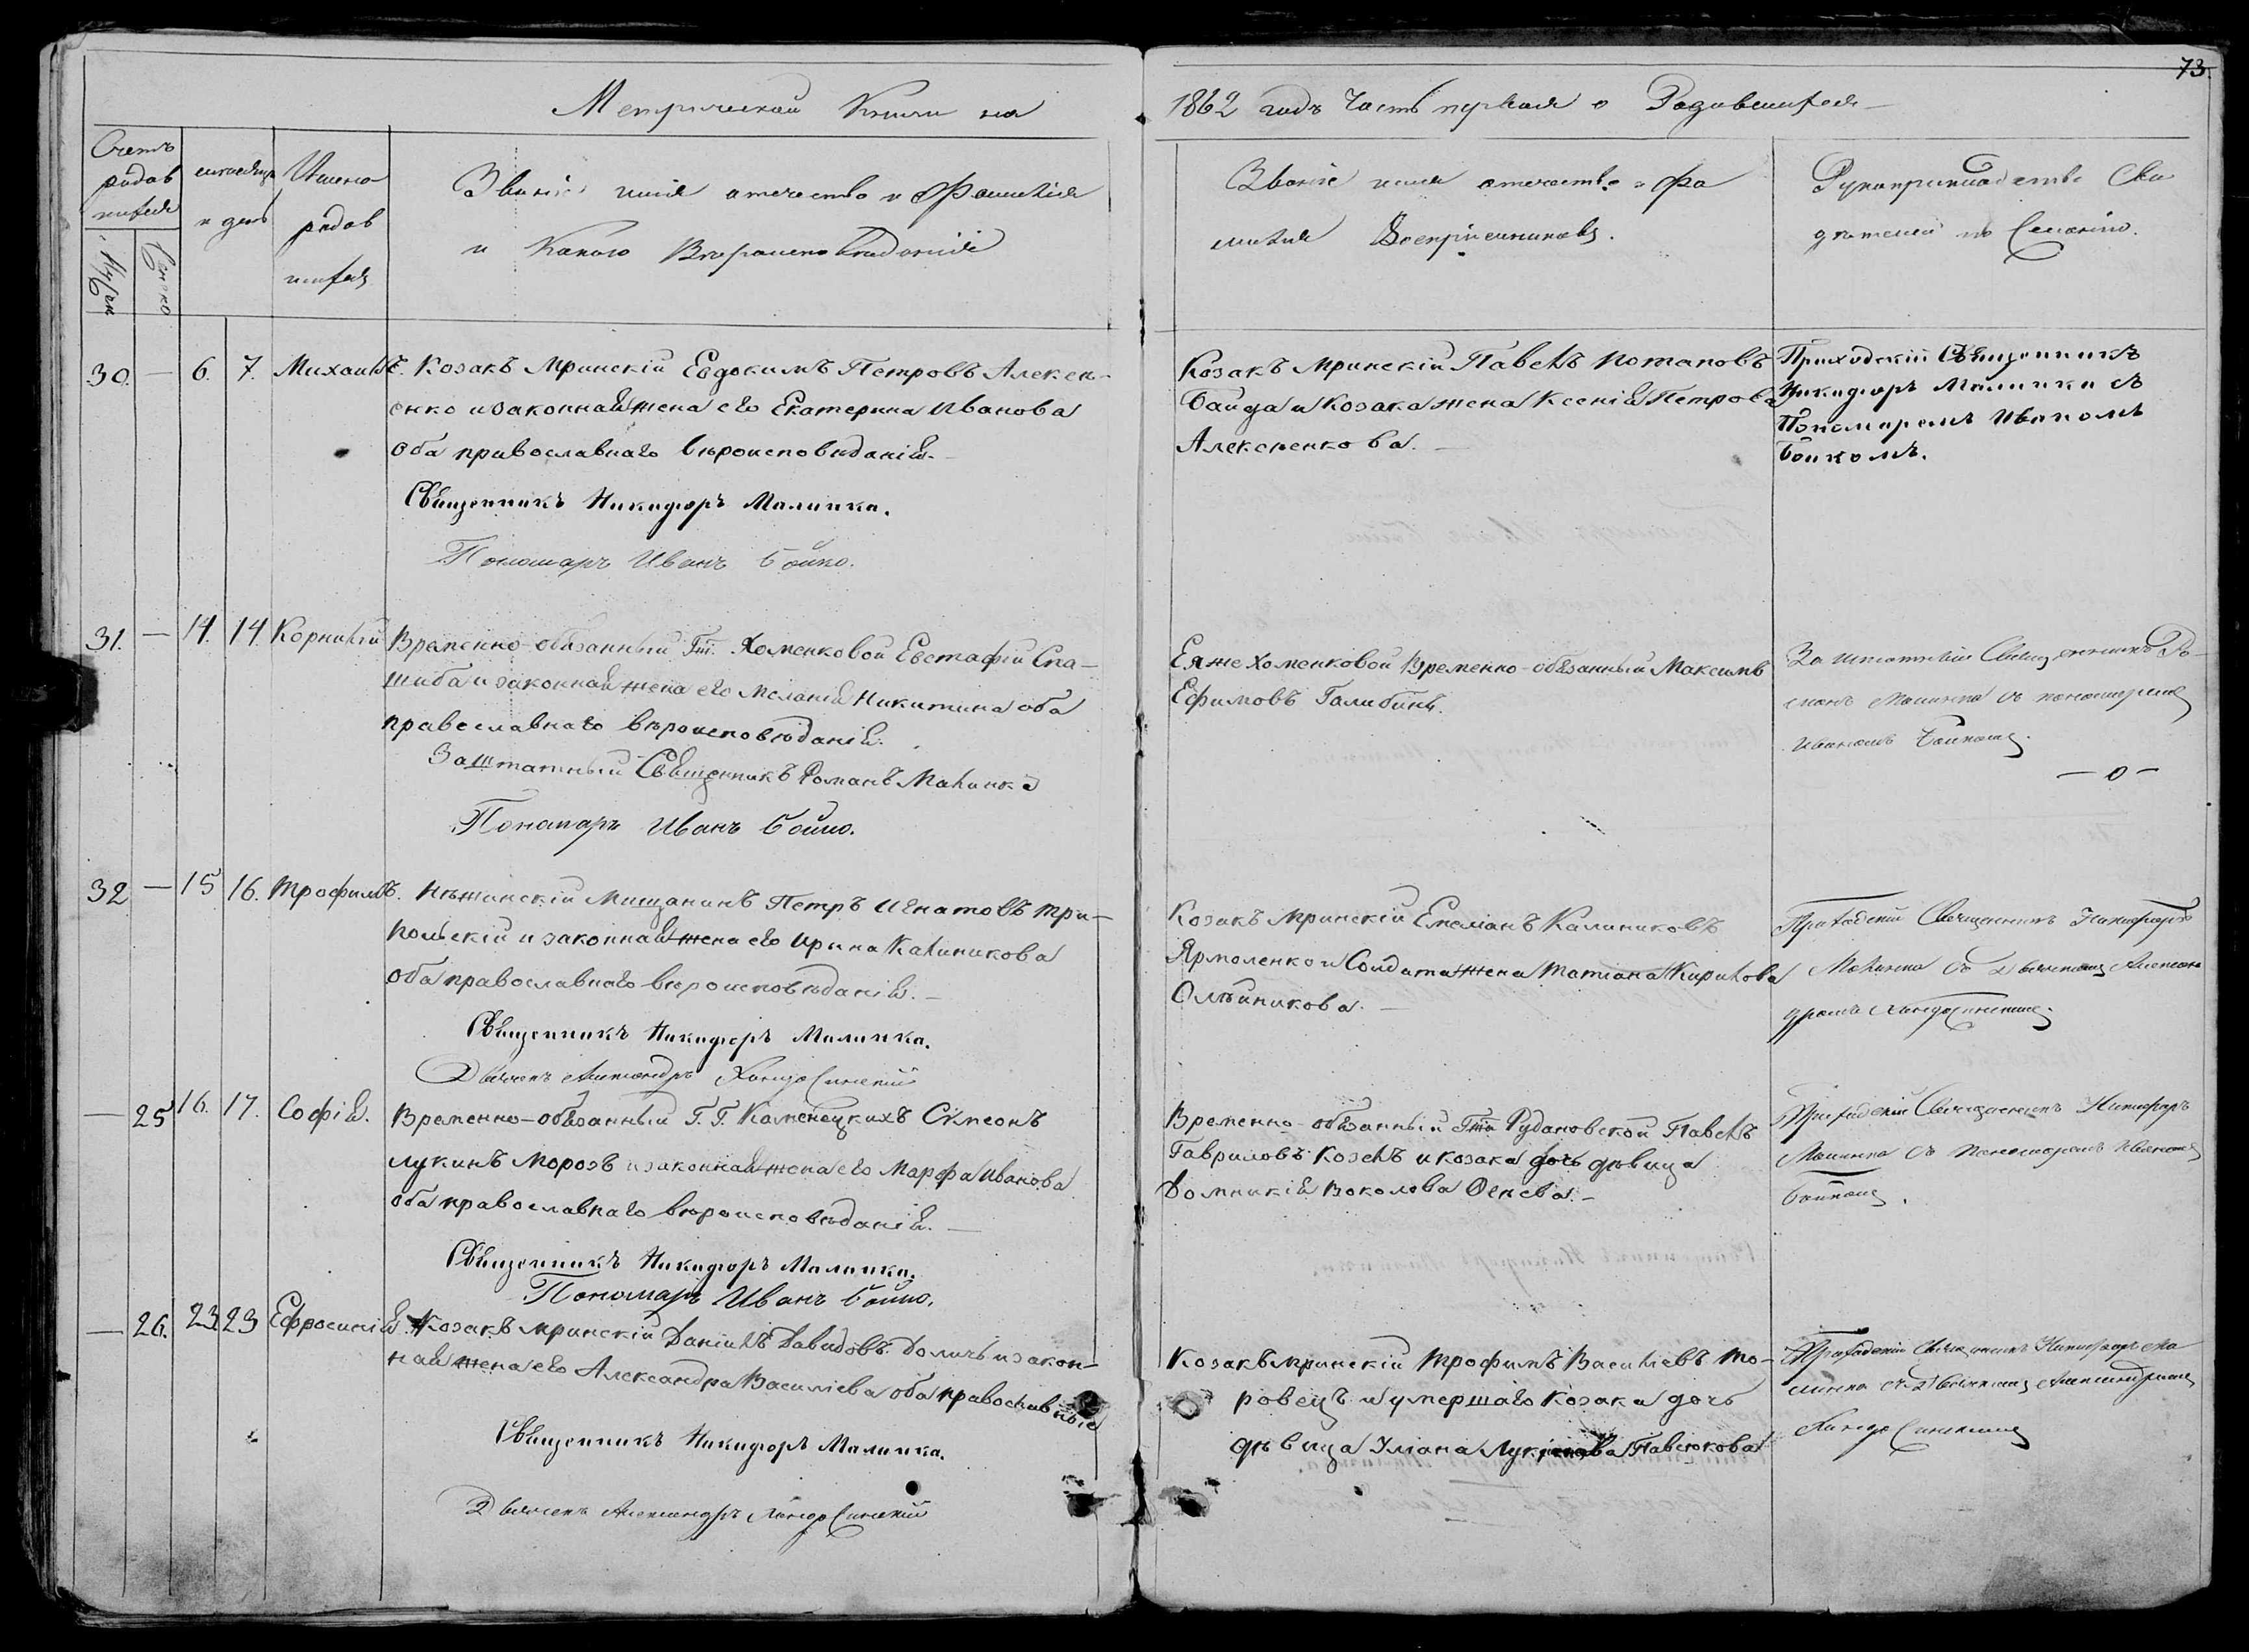 73.
Метрической Книги на 1862 годъ Часть первая о Родившихся
Счетъ родившихся
Муж.
Женско
месяцъ и день
Имена родившихся
Званіе имя отечество и Фамилія
и Какого Вероисповеданія
Званіе имя отечество и Фа
милія Воспріемниковъ.
Рукоприкладство Сви
дѣтелей по Желанію.
30. — 6. 7. Михаилъ.
Козакъ Мринскій Евдокимъ Петровъ Алексѣ-
енко и законная жена его Екатерина Иванова
оба православнаго вѣроисповѣданія.
Священникъ Никифоръ Малинка.
Пономарь Иванъ Бойко.
Козакъ Мринскій Павелъ Потаповъ
Байда и Козака жена Ксенія Петрова
Алексеенкова.
Приходскій Священникъ
Никифоръ Малинка съ
Пономаремъ Иваномъ
Бойкомъ.
31. — 14. 14. Корнилій
Временно-обязанный Гжи. Хоменковой Евстафій
и законная жена его Меланія Никитина оба
православнаго вѣроисповѣданія.
Заштатный Священникъ Романъ Малинка
Пономарь Иванъ Бойко.
Ея же Хоменковой Временно-обязанный Максимъ
Ефимовъ Галибинъ.
Заштатный Священникъ Ро-
манъ Малинка съ пономаремъ
Иваномъ Бойкомъ.
— о —
32 — 15 16. Трофимъ.
Нѣжинскій Мищанинъ Петръ Игнатовъ Три-
польскій и законная жена его Ирина Калиникова
оба православнаго вѣроисповѣданія. —
Священникъ Никифоръ Малинка.
Дьячокъ Александръ
Козакъ Мринскій Емеліанъ Калиниковъ
Ярмоленко и Солдата жена Татіана Кирилова
Олѣйникова. —
Приходскій Священникъ Никифоръ
Малинка съ Дьячкомъ Алексан
дромъ
— 25 16. 17. Софія.
Временно-обязанный Г. Г. Каменецкихъ Сѵмеонъ
Лукинъ Морозъ и законная жена его Марфа Иванова
оба православнаго вѣроисповѣданія. —
Священникъ Никифоръ Малинка.
Пономарь Иванъ Бойко.
Временно-обязанный Гжи Рудановской Павелъ
Гавриловъ Козелъ и козака дочь дѣвица
Домникія
Приходскій Священникъ Никифоръ
Малинка съ Пономаремъ Иваномъ
Бойкомъ.
— 26. 23 23 Ефросинія.
Козакъ Мринскій Даніилъ Давидовъ и закон-
ная жена его Александра Василіева оба православные
Священникъ Никифоръ Малинка.
Дьячокъ Александръ
Козакъ Мринскій Трофимъ Василіевъ То-
ровецъ и умершаго Козака дочь
дѣвица Уліана Лукіанова Павлюкова
Приходскій Священникъ Никифоръ Ма
линка съ Дьячкомъ Александромъ